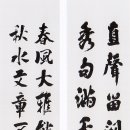 春風大雅能
秋水文章不
直聲留
秀句滿天